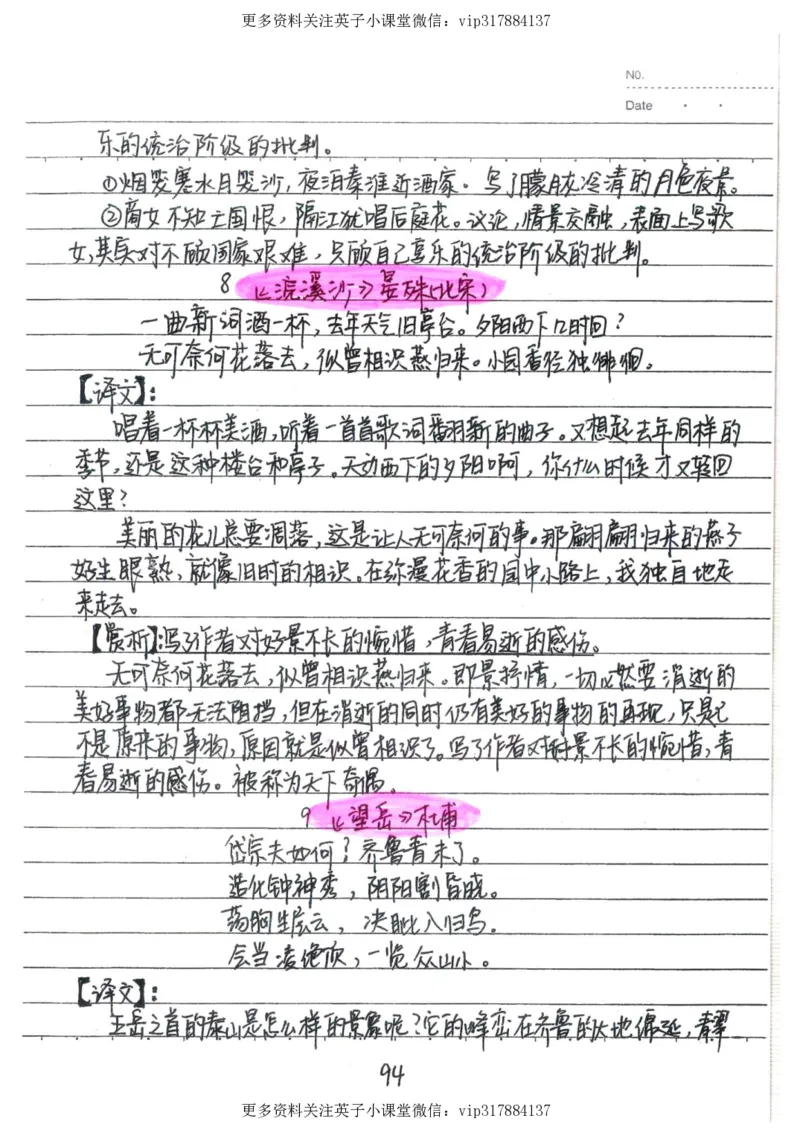 更多资料关注英子小课堂微信：vip317884137
NO.
Date
乐的统治阶级的批判。
①烟笼寒水月笼沙，夜泊秦淮近酒家。写了朦胧冷清的月色夜景。
②商女不知亡国恨，隔江犹唱后庭花。议论，情景交融，表面上写歌
女，其实对不顾国家艰难，只顾自己享乐的统治阶级的批判。
8 《浣溪沙》晏殊(北宋)
一曲新词酒一杯，去年天气旧亭台。夕阳西下几时回？
无可奈何花落去，似曾相识燕归来。小园香径独徘徊。
【译文】：
唱着一杯杯美酒，听着一首首歌词翻新的曲子。又想起去年同样的
季节，还是这种楼台和亭子。天边西下的夕阳啊，你什么时候才又轻回
这里？
美丽的花儿总要凋落，这是让人无可奈何的事。那翩翩归来的燕子
好生眼熟，就像旧时的相识。在弥漫花香的园中小路上，我独自地走
来走去。
【赏析】写了作者对好景不长的惋惜，青春易逝的感伤。
无可奈何花落去，似曾相识燕归来。即景抒情，一切必然要消逝的
美好事物都无法阻挡，但在消逝的同时仍有美好的事物的再现，只是已
不是原来的事物，原因就是似曾相识了。写了作者对好景不长的惋惜，青
春易逝的感伤。被称为天下奇偶。
9 《望岳》杜甫
岱宗夫如何？齐鲁青未了。
造化钟神秀，阴阳割昏晓。
荡胸生层云，决眦入归鸟。
会当凌绝顶，一览众山小。
【译文】：
五岳之首的泰山是怎么样的景象呢？它的峰峦在齐鲁的大地绵延，青翠
94
更多资料关注英子小课堂微信：vip317884137